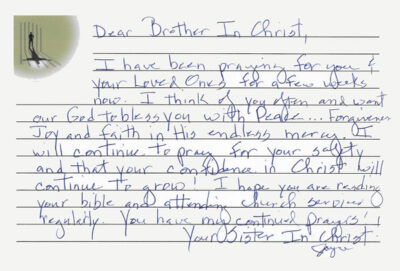 Dear Brother In Christ,
I have been praying for you &
your Loved Ones for a few weeks
now. I think of you often and want
our God to bless you with Peace... Forgiveness
Joy and faith in His endless mercy. I
will continue to pray for your safety
and that your confidence in Christ will
continue to grow! I hope you are reading
your bible and attending church services
regularly. You have my continued prayers!
Your Sister In Christ
Joyce